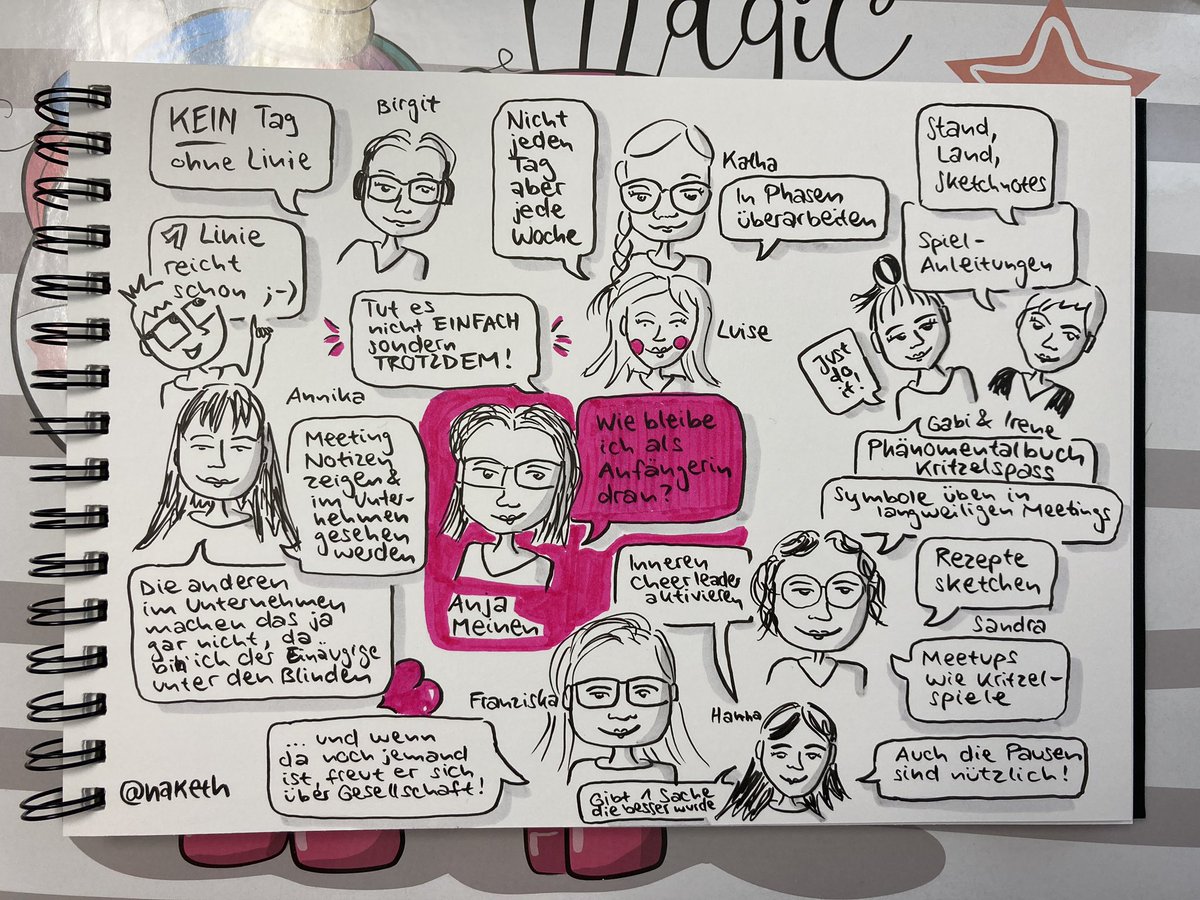 Magic
KEIN Tag
ohne Linie
Birgit
Nicht
jeden
Tag
aber
jede
Woche
Katha
In Phasen
überarbeiten
Stand,
Land,
Sketchnotes
Spiel-
Anleitungen
1 Linie
reicht
schon ;-)
Tut es
nicht EINFACH
sondern
TROTZDEM!
Luise
Just
do
it
Gabi & Irene
Annika
Meeting
Notizen
zeigen &
im Unter-
nehmen
gesehen
werden
Wie bleibe
ich als
Anfängerin
dran?
Anja
Meinen
Phänomentalbuch
Kritzelspass
Symbole üben in
langweiligen Meetings
Die anderen
im Unternehmen
machen das ja
gar nicht, da
bin ich der Einäugige
unter den Blinden
Inneren
Cheerleader
aktivieren
Rezepte
sketchen
Sandra
Meetups
wie Kritzel-
spiele
Franziska
Hanna
... und wenn
da noch jemand
ist, freut er sich
über Gesellschaft!
Gibt 1 Sache
die besser wurde
Auch die Pausen
sind nützlich!
@naketh